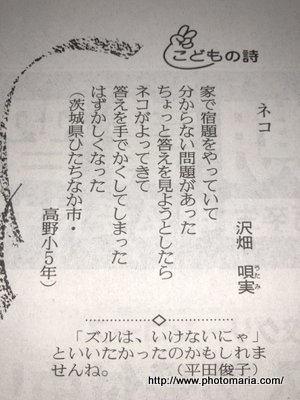 こどもの詩
ネコ
沢畑 唄実
うたみ
家で宿題をやっていて
分からない問題があった
ちょっと答えを見ようとしたら
ネコがよってきて
答えを手でかくしてしまった
はずかしくなった
（茨城県ひたちなか市・
高野小5年）
「ズルは、いけないにゃ」
といいたかったのかもしれま
せんね。　（平田俊子）
http://www.photomaria.com/